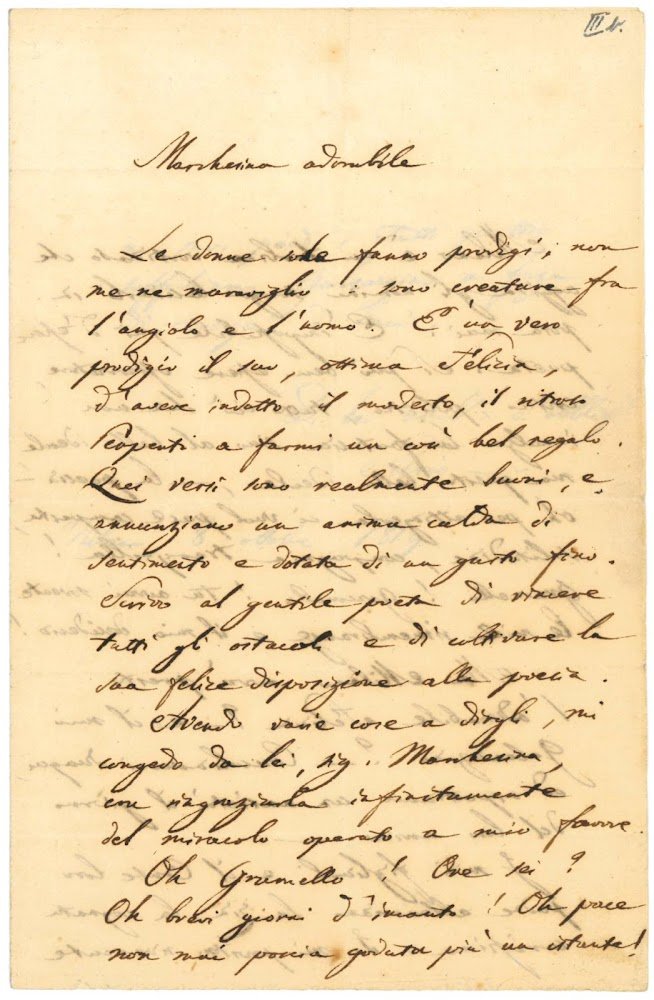 III b.
Marchesina adorabile
Le donne sole fanno prodigi, non
me ne maraviglio : sono creature fra
l'angiolo e l'uomo. È un vero
prodigio il suo, ottima Felicia,
d'avere indotto il modesto, il ritroso
a farmi un così bel regalo.
Quei versi sono realmente buoni, e
annunziano un anima calda di
sentimento e dotata di un gusto fino.
Scrivo al gentile poeta di vincere
tutti gli ostacoli e di coltivare la
sua felice disposizione alla poesia.
Avendo varie cose a dirgli, mi
congedo da lei, sig. Marchesina,
con ringraziarla infinitamente
del miracolo operato a mio favore.
Oh Grumello ! Ove sei ?
Oh brevi giorni d'incanto ! Oh pace
non mai poscia goduta più un istante!